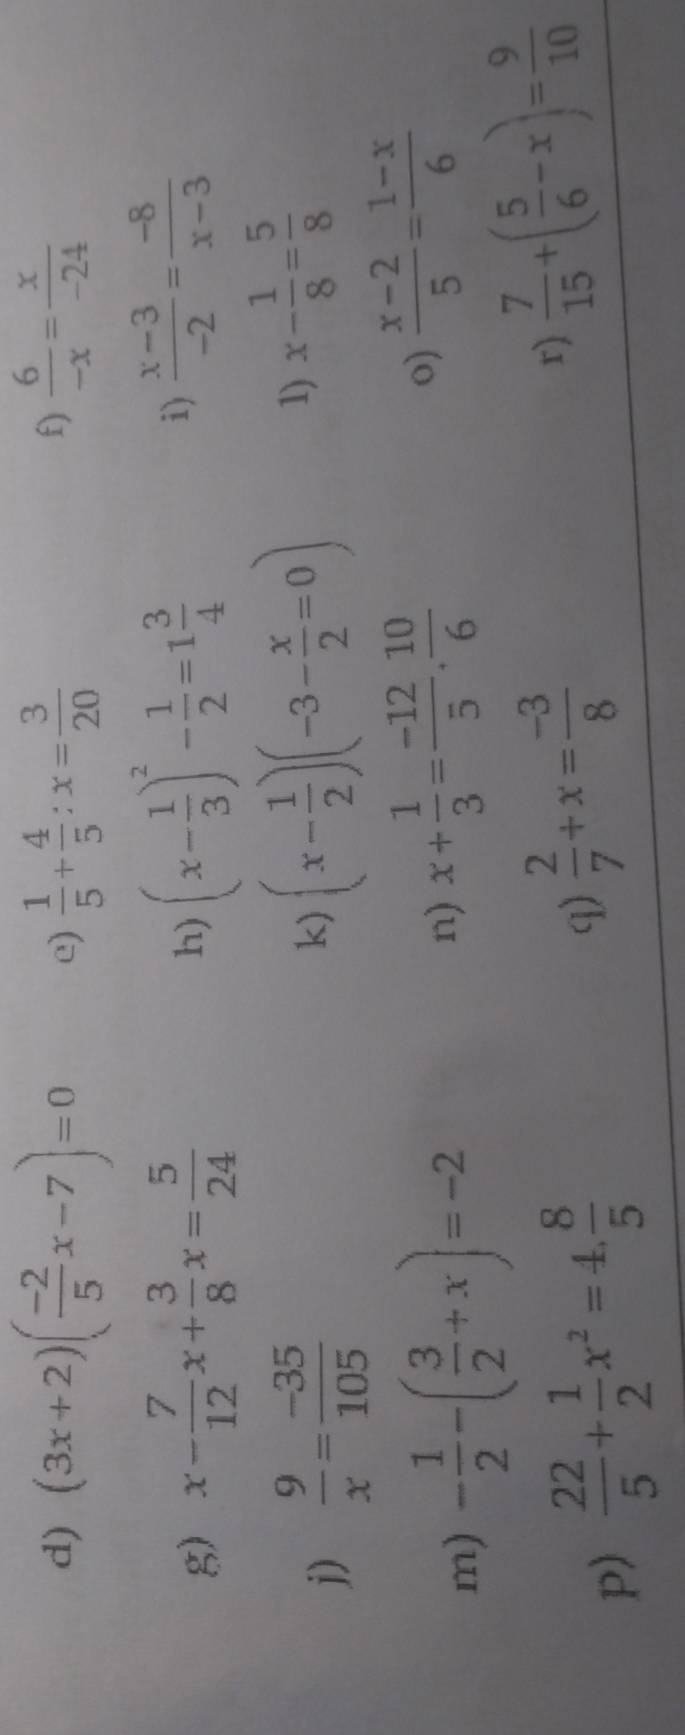 d) (3x + 2)(-2/5 x - 7) = 0 e) 1/5 + 4/5 : x = 3/20 f) 6/-x = x/-24
g) x - 7/12 x + 3/8 x = 5/24 h) (x - 1/3)² - 1/2 = 1 3/4 i) x-3/-2 = -8/x-3
j) 9/x = -35/105 k) (x - 1/2)(-3 - x/2 = 0) l) x - 1/8 = 5/8
m) -1/2 - (3/2 + x) = -2 n) x + 1/3 = -12/5 . 10/6 o) x-2/5 = 1-x/6
p) 22/5 + 1/2 x² = 4. 8/5 q) 2/7 + x = -3/8 r) 7/15 + (5/6 - x) = 9/10